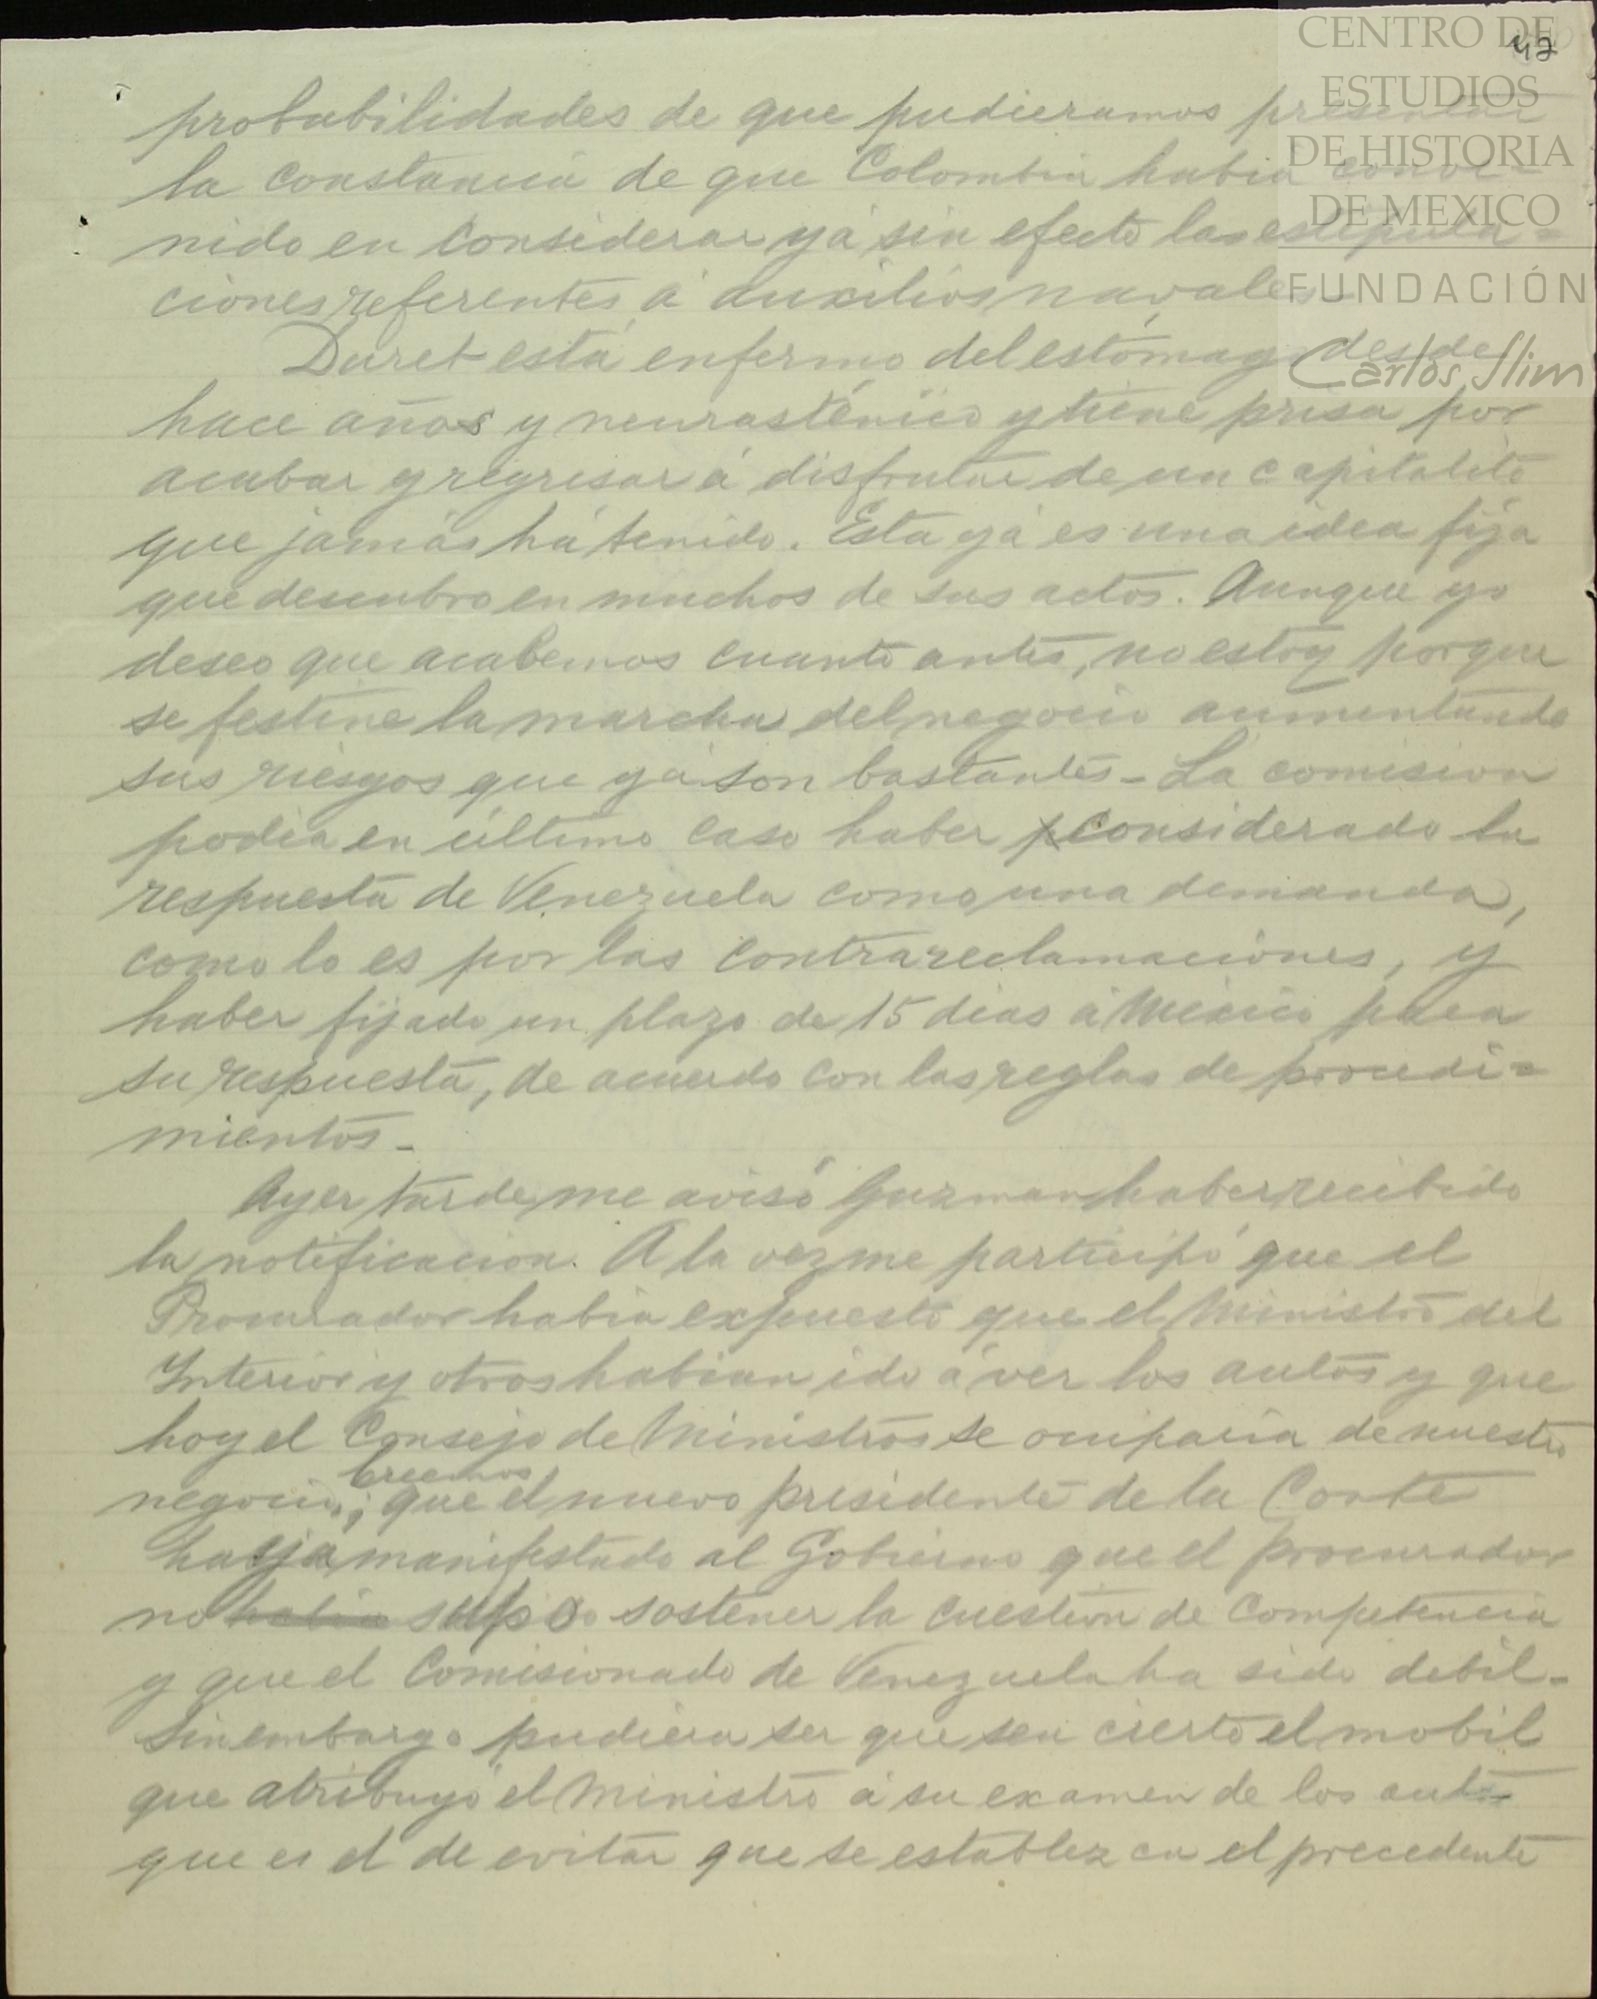 CENTRO DE
ESTUDIOS
DE HISTORIA
DE MEXICO
FUNDACIÓN
Carlos Slim
42
probabilidades de que pudieramos presentar
la constancia de que Colombia habia conve-
nido en considerar yá sin efecto las estipula-
ciones referentes á auxilios navales.
Duret está enfermo del estómago desde
hace años y neurasténico y tiene prisa por
acabar y regresar á disfrutar de un capitalito
que jamás há tenido. Esta yá es una idea fija
que descubro en muchos de sus actos. Aunque yo
deseo que acabemos cuanto antes, no estoy porque
se festine la marcha del negocio aumentando
sus riesgos que yá son bastantes - La comision
podia en último caso haber considerado la
respuesta de Venezuela como una demanda,
como lo es por las contrareclamaciones, y
haber fijado un plazo de 15 dias á México para
su respuesta, de acuerdo con las reglas de procedi-
mientos -
Ayer tarde me avisó Guzman haber recibido
la notificacion. A la vez me participó que el
Procurador habia expuesto que el Ministro del
Interior y otros habian ido á ver los autos y que
hoy el Consejo de Ministros se ocuparia de nuestro
negocio; creemos que el nuevo presidente de la Corte
haya manifestado al Gobierno que el procurador
no habia supo sostener la cuestion de competencia
y que el Comisionado de Venezuela ha sido debil -
Sin embargo pudiera ser que sea cierto el mobil
que atribuyó el Ministro á su examen de los autos
que es el de evitar que se establezca el precedente